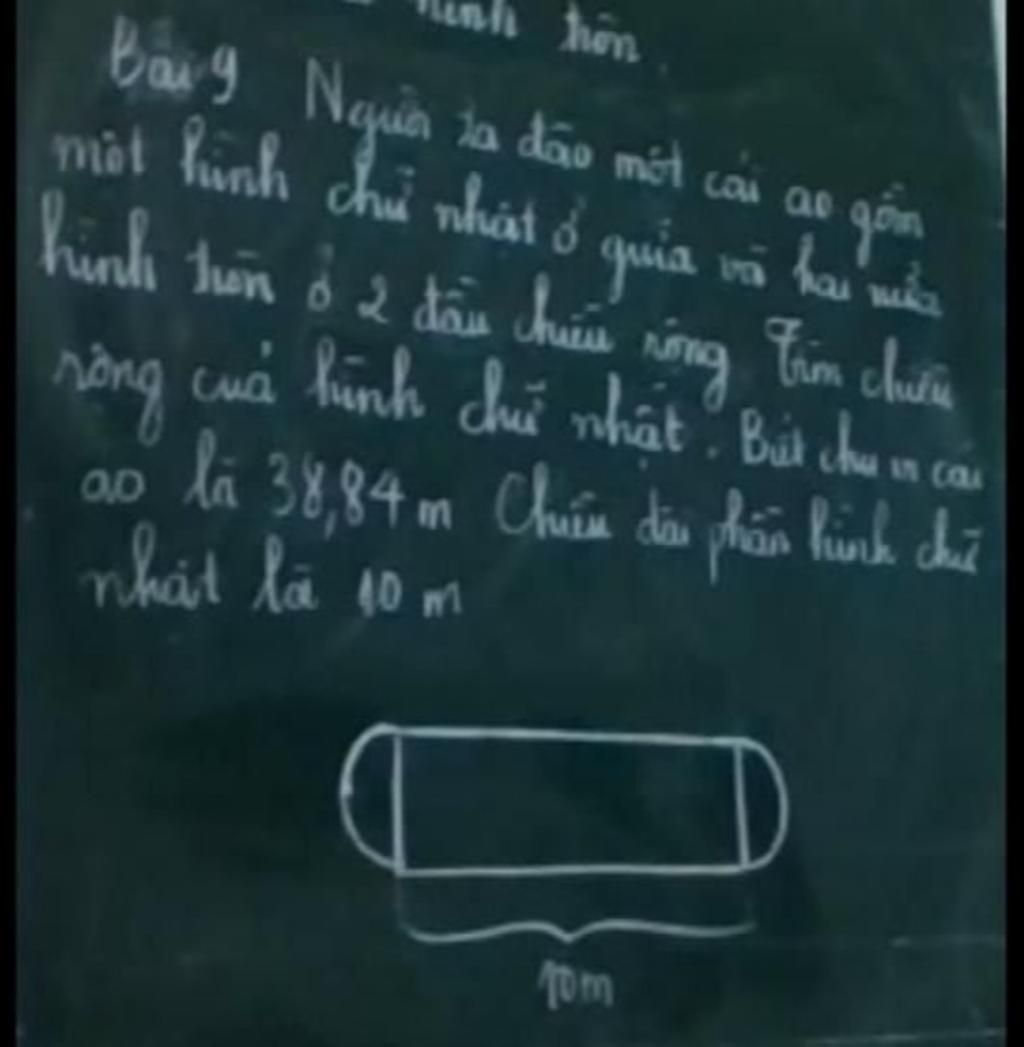 hình tròn.
Bài 9 Người ta đào một cái ao gồm
một hình chữ nhật ở giữa và hai nửa
hình tròn ở 2 đầu chiều rộng Tìm chiều
rộng của hình chữ nhật. Biết chu vi cái
ao là 38,84 m Chiều dài phần hình chữ
nhật là 10 m
10m